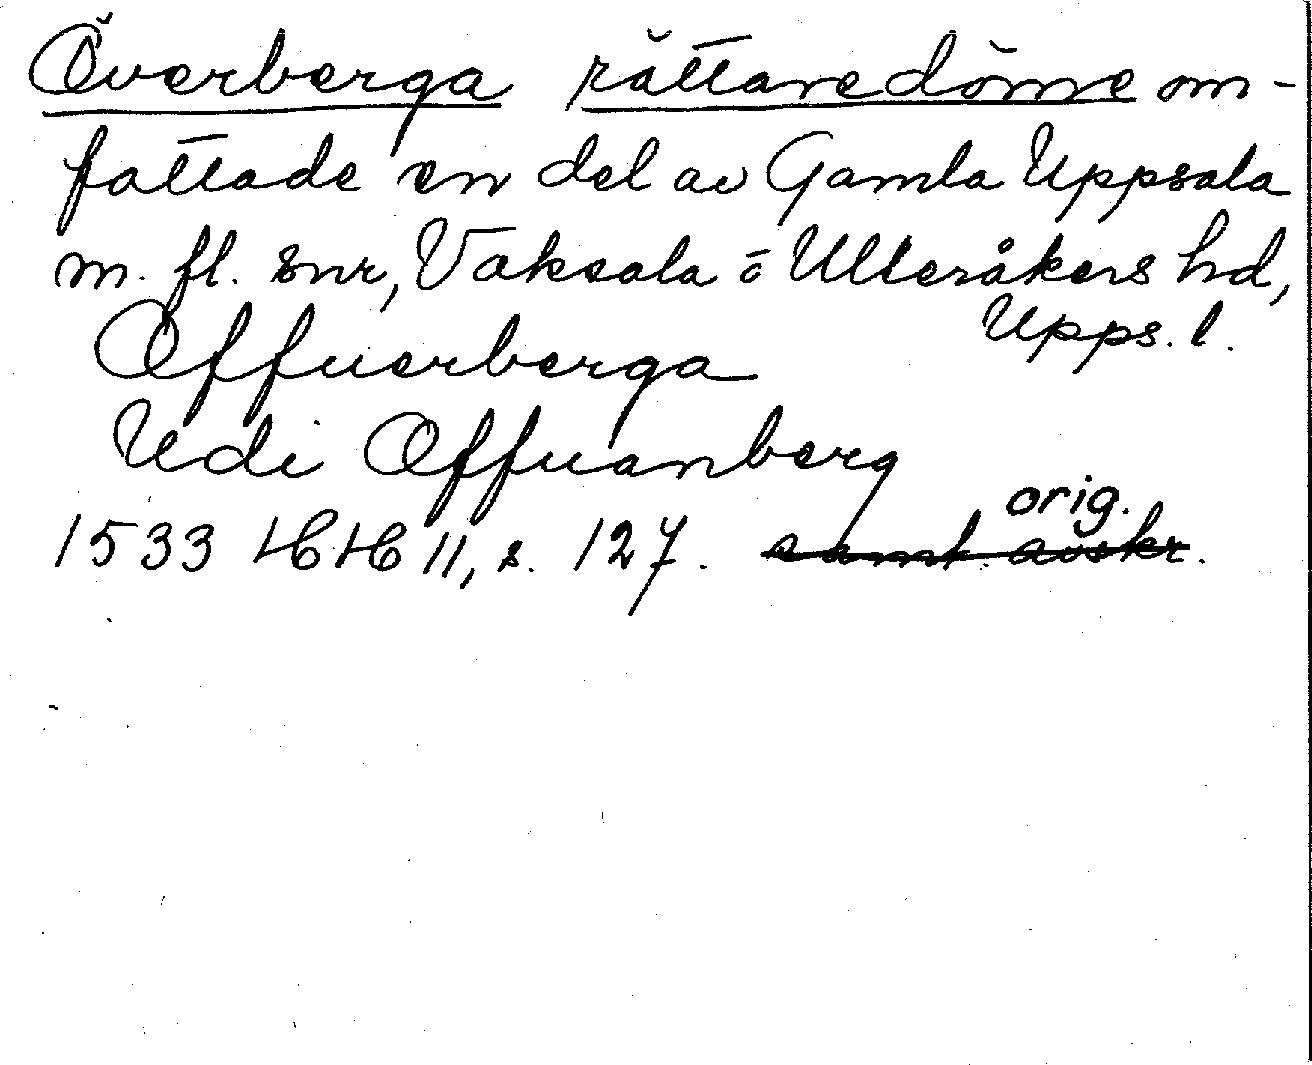 Överberga rättaredöme om-
fattade en del av Gamla Uppsala
m. fl. snr, Vaksala o Ulleråkers hd,
Upps. l.
Offuerberga
Udi Offuanberg
orig.
1533 HH 11, s. 127. samt. avskr.